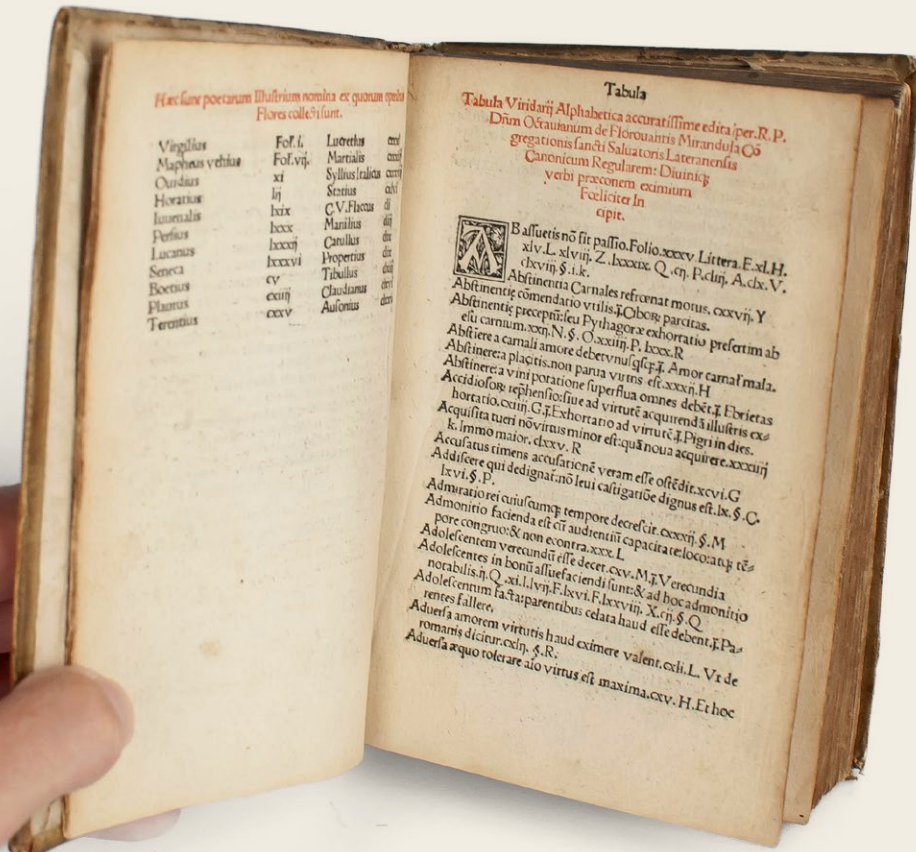 Hæc sunt poetarum Illustrium nomina ex quorum
Flores collecti sunt.
Virgilius Fol.i. Lucretius
Mapheus vehius Fol.vij. Martialis
Ouidius xi Syllius Italicus
Horatius lij Statius
Iuuenalis lxix C.V.Flaccus
Persius lxxx Manilius
Lucanus lxxxij Catullus
Seneca lxxxvi Propertius
Boetius cv Tibullus
Plautus cxiiij Claudianus
Terentius cxxv Ausonius
Tabula
Tabula Viridarij Alphabetica accuratissime edita per.R.P.
Dñm Octauianum de Florouantis Mirandula Cõ
gregationis sancti Saluatoris Lateranensis
Canonicum Regularem: Diuiniqꝫ
verbi præconem eximium
Fœliciter In
cipit.
AB assuetis nõ fit passio.Folio.xxxv.Littera.E.xl.H.
xlv.L.xlviij.Z.lxxxix.Q.cij.P.cliij.A.clx.V.
clxviij.§.i.k.
Abstinentia Carnales refrœnat motus.cxxvij.Y
Abstinentię cõmendatio vtilis. parcitas.
Abstinentię preceptũ:seu Pythagoræ exhortatio presertim ab
esu carnium.xxij.N.§.O.xxiiij.P.lxxx.R
a carnali amore Amor carnal mala.
Abstinere:a placitis.non parua virtus est.xxxij.H
Abstinere:a vini potatione superflua omnes debẽt. Ebrietas
reprhensio:siue ad virtutẽ acquirendã illustris ex⸗
hortatio.cxiiij.G. Exhortatio ad virtutẽ. Pigri in dies.
Acquisita tueri nõ virtus minor est:quã noua acquirere.xxxiiij
k.Immo maior.clxxv.R
Accusatus timens accusationẽ veram esse ostẽdit.xcvi.G
Addiscere qui dedignat:nõ leui castigatiõe dignus est.lx.§.C.
lxvi.§.P.
Admiratio rei cuiuscumqꝫ tempore decrescit.cxxxij.§.M
Admonitio facienda est cũ audientiũ capacitate:loco:atqꝫ tẽ⸗
pore congruo:& non econtra.xxx.L
Adolescentem verecundũ esse decet.cxv.M. Verecundia
Adolescentes in bonũ assuefaciendi sunt:& ad hoc admonitio
notabilis.ij.Q.xi.I.lvij.F.lxvi.F.lxxviij.X.cij.§.Q
Adolescentum facta:parentibus celata haud esse debent. Pa⸗
rentes fallere.
Aduersa amorem virtutis haud eximere valent.cxli.L.Vt de
romanis dicitur.cxlij.§.R.
Aduersa æquo tolerare aĩo virtus est maxima.cxv.H.Et hoc